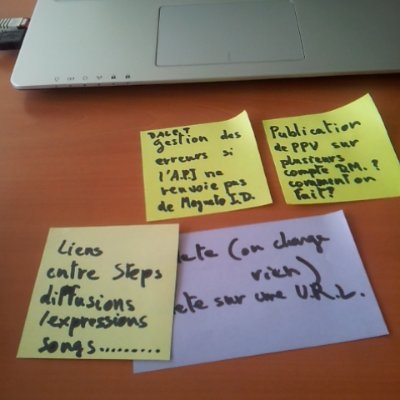 DALET
gestion des
erreurs si
l'API ne
renvoie pas
de Magneto I.D.
Publication
de PPV sur
plusieurs
compte DM.?
comment on
fait?
Liens
entre Steps
diffusions
/expressions
songs.........
(on change
rien)
sur une U.R.L.